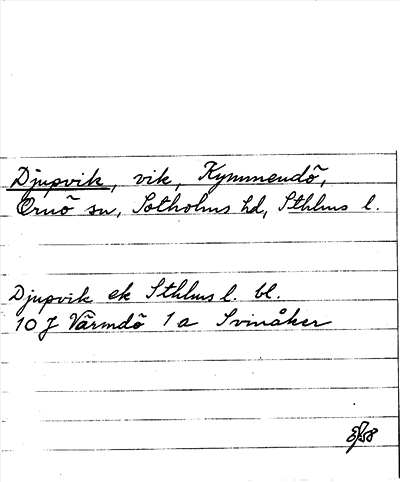 Djupvik, vik, Kymmendö,
Ornö sn, Sotholms hd, Sthlms l.
Djupvik ek Sthlms l. bl.
10 J Värmdö 1 a Svinåker